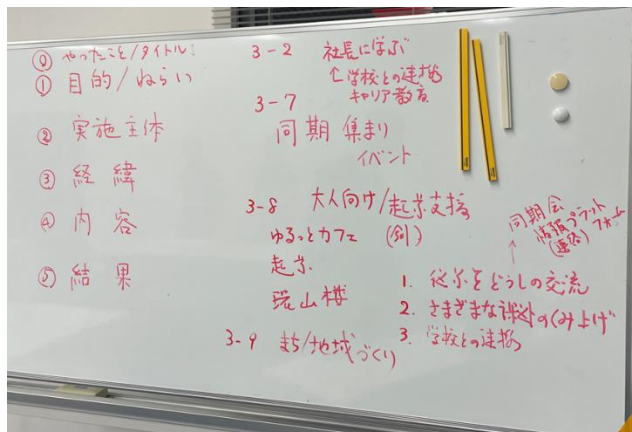 ⓪ やったこと/タイトル:
① 目的/ねらい
② 実施主体
③ 経緯
④ 内容
⑤ 結果
3-2 社長に学ぶ
↳学校との連携
キャリア教育
3-7
同期集まり
イベント
3-8 大人向け/起業支援
ゆるっとカフェ (例)
起業
3-9 まち/地域づくり
同期会
プラット
フォーム
↑
1. 従業員どうしの交流
2. さまざまな のくみ上げ
3. 学校との連携